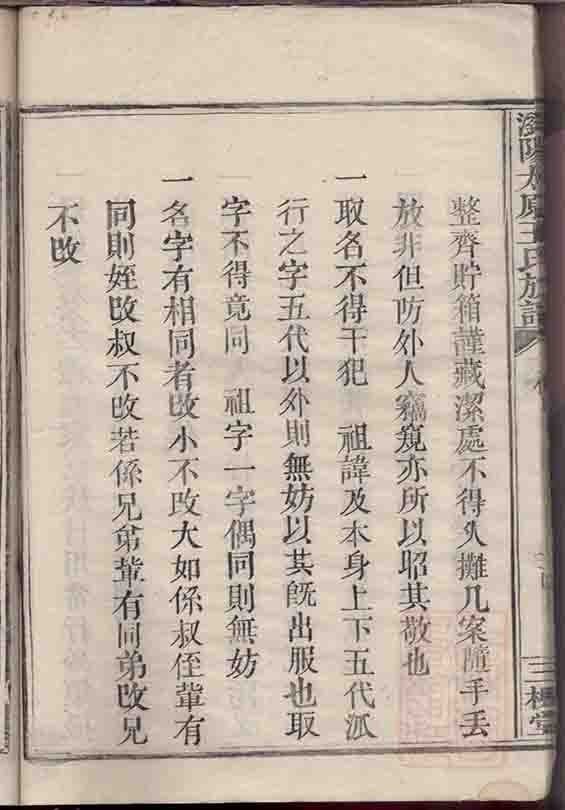 瀏陽太原王氏族譜
三槐堂
整齊貯箱謹藏潔處不得久攤几案隨手丟
放非但防外人竊窺亦所以昭其敬也
一取名不得干犯　祖諱及本身上下五代派
行之字五代以外則無妨以其旣出服也取
字不得竟同　祖字一字偶同則無妨
一名字有相同者改小不改大如係叔侄輩有
同則姪改叔不改若係兄弟輩有同弟改兄
不改